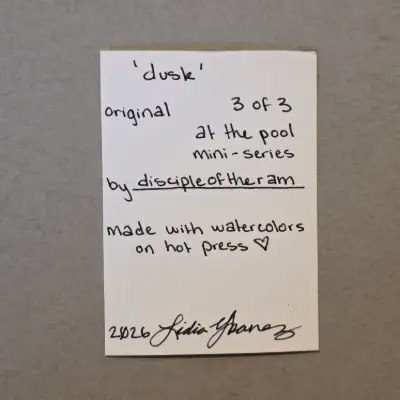 'dusk'
original 3 of 3
at the pool
mini-series
by discipleoftheram
made with watercolors
on hot press ♡
2026 Lidia Ybanez